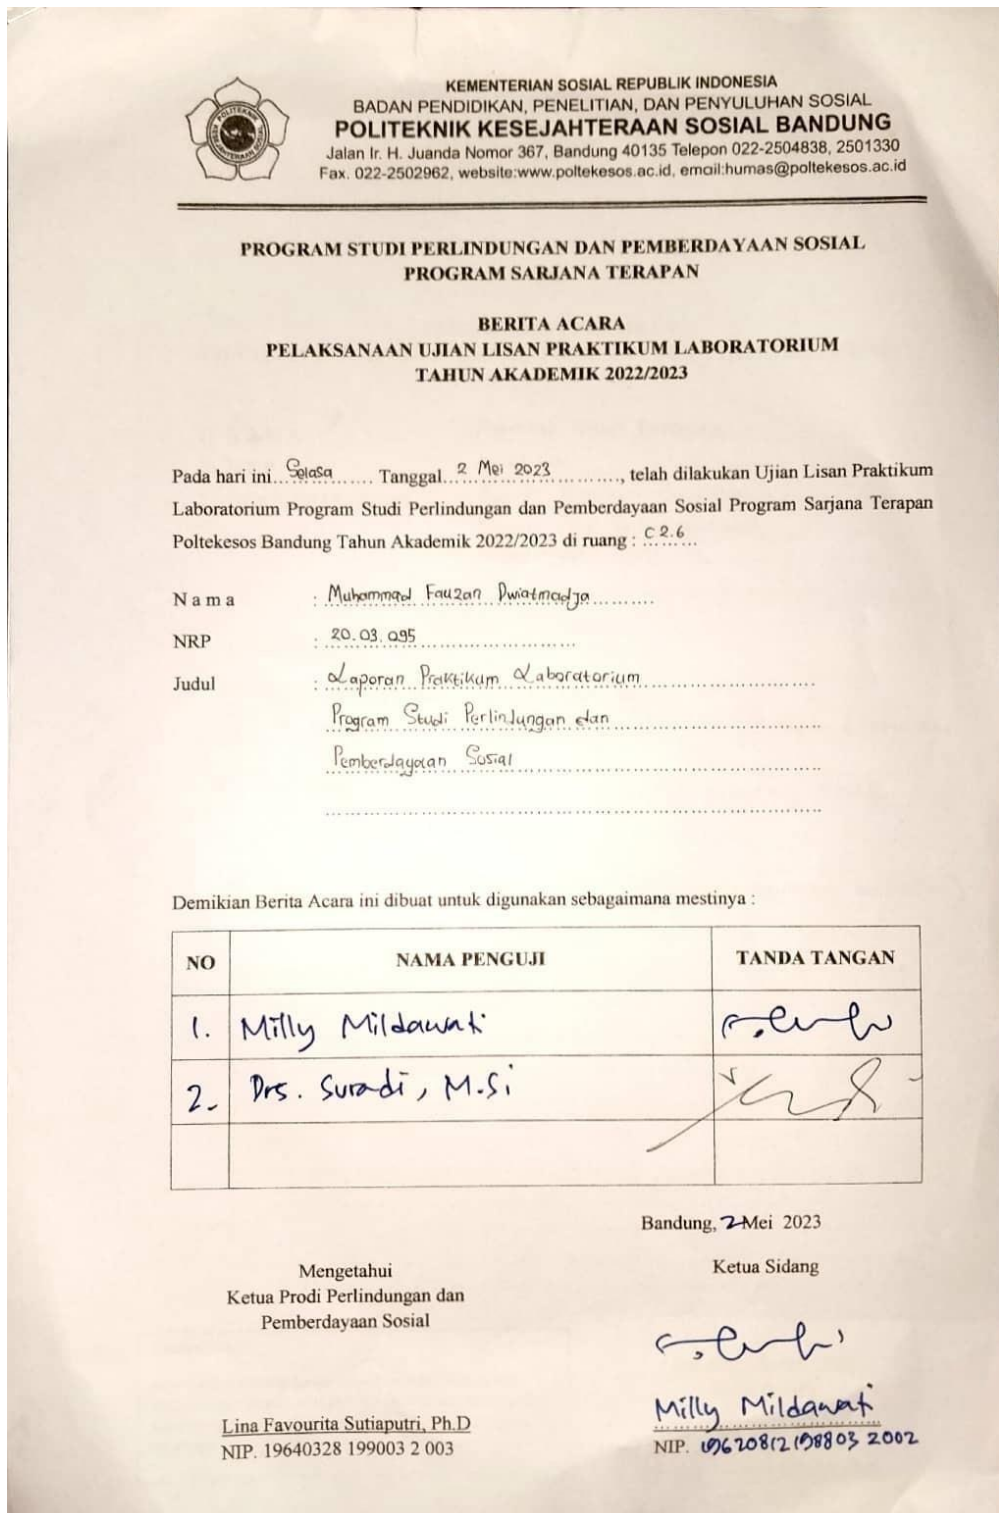 KEMENTERIAN SOSIAL REPUBLIK INDONESIA
BADAN PENDIDIKAN, PENELITIAN, DAN PENYULUHAN SOSIAL
POLITEKNIK KESEJAHTERAAN SOSIAL BANDUNG
Jalan Ir. H. Juanda Nomor 367, Bandung 40135 Telepon 022-2504838, 2501330
Fax. 022-2502962, website:www.poltekesos.ac.id, email:humas@poltekesos.ac.id
POLITEKNIK KESEJAHTERAAN SOSIAL
PROGRAM STUDI PERLINDUNGAN DAN PEMBERDAYAAN SOSIAL
PROGRAM SARJANA TERAPAN
BERITA ACARA
PELAKSANAAN UJIAN LISAN PRAKTIKUM LABORATORIUM
TAHUN AKADEMIK 2022/2023
Pada hari ini Selasa Tanggal 2 Mei 2023, telah dilakukan Ujian Lisan Praktikum
Laboratorium Program Studi Perlindungan dan Pemberdayaan Sosial Program Sarjana Terapan
Poltekesos Bandung Tahun Akademik 2022/2023 di ruang : C 2.6
N a m a : Muhammad Fauzan Dwiatmadja
NRP : 20.03.095
Judul : Laporan Praktikum Laboratorium
Program Studi Perlindungan dan
Pemberdayaan Sosial
Demikian Berita Acara ini dibuat untuk digunakan sebagaimana mestinya :
NO NAMA PENGUJI TANDA TANGAN
1. Milly Mildawati
2. Drs. Suradi, M.Si
Bandung, 2 Mei 2023
Mengetahui
Ketua Prodi Perlindungan dan
Pemberdayaan Sosial
Lina Favourita Sutiaputri, Ph.D
NIP. 19640328 199003 2 003
Ketua Sidang
Milly Mildawati
NIP. 19620812198803 2002